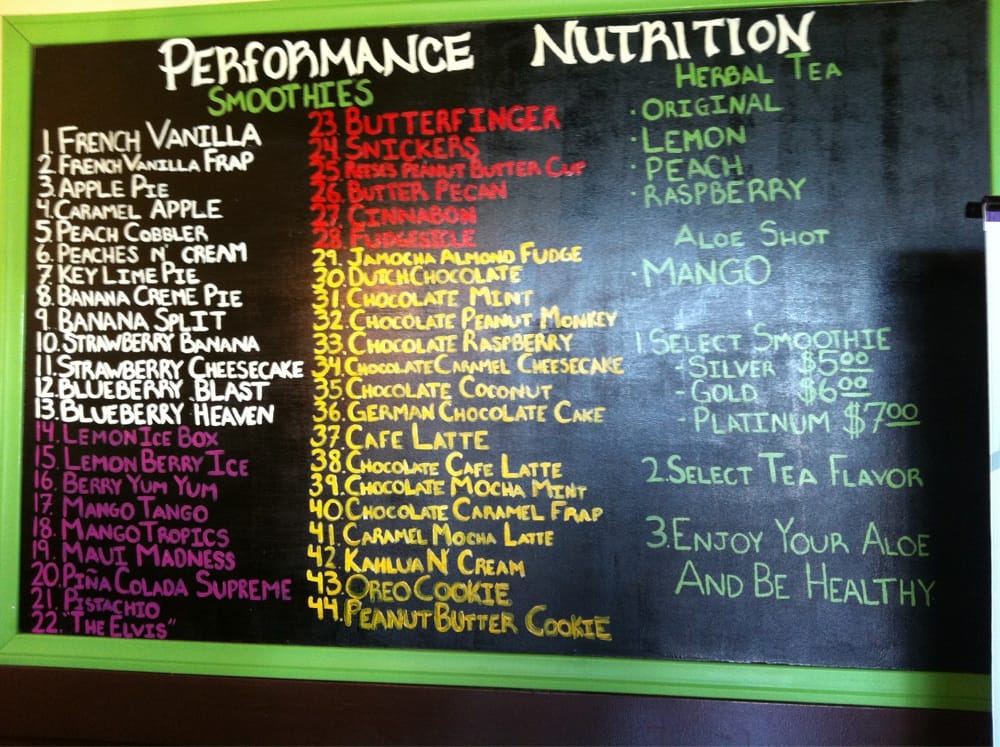 PERFORMANCE NUTRITION
SMOOTHIES
1. FRENCH VANILLA
2. FRENCH VANILLA FRAP
3. APPLE PIE
4. CARAMEL APPLE
5. PEACH COBBLER
6. PEACHES N' CREAM
7. KEY LIME PIE
8. BANANA CREME PIE
9. BANANA SPLIT
10. STRAWBERRY BANANA
11. STRAWBERRY CHEESECAKE
12. BLUEBERRY BLAST
13. BLUEBERRY HEAVEN
14. LEMON ICE BOX
15. LEMON BERRY ICE
16. BERRY YUM YUM
17. MANGO TANGO
18. MANGO TROPICS
19. MAUI MADNESS
20. PIÑA COLADA SUPREME
21. PISTACHIO
22. "THE ELVIS"
23. BUTTERFINGER
24. SNICKERS
25. REESE'S PEANUT BUTTER CUP
26. BUTTER PECAN
27. CINNABON
28. FUDGESICLE
29. JAMOCHA ALMOND FUDGE
30. DUTCH CHOCOLATE
31. CHOCOLATE MINT
32. CHOCOLATE PEANUT MONKEY
33. CHOCOLATE RASPBERRY
34. CHOCOLATE CARAMEL CHEESECAKE
35. CHOCOLATE COCONUT
36. GERMAN CHOCOLATE CAKE
37. CAFE LATTE
38. CHOCOLATE CAFE LATTE
39. CHOCOLATE MOCHA MINT
40. CHOCOLATE CARAMEL FRAP
41. CARAMEL MOCHA LATTE
42. KAHLUA N' CREAM
43. OREO COOKIE
44. PEANUT BUTTER COOKIE
HERBAL TEA
· ORIGINAL
· LEMON
· PEACH
· RASPBERRY
ALOE SHOT
· MANGO
1. SELECT SMOOTHIE
- SILVER $5.00
- GOLD $6.00
- PLATINUM $7.00
2. SELECT TEA FLAVOR
3. ENJOY YOUR ALOE
AND BE HEALTHY